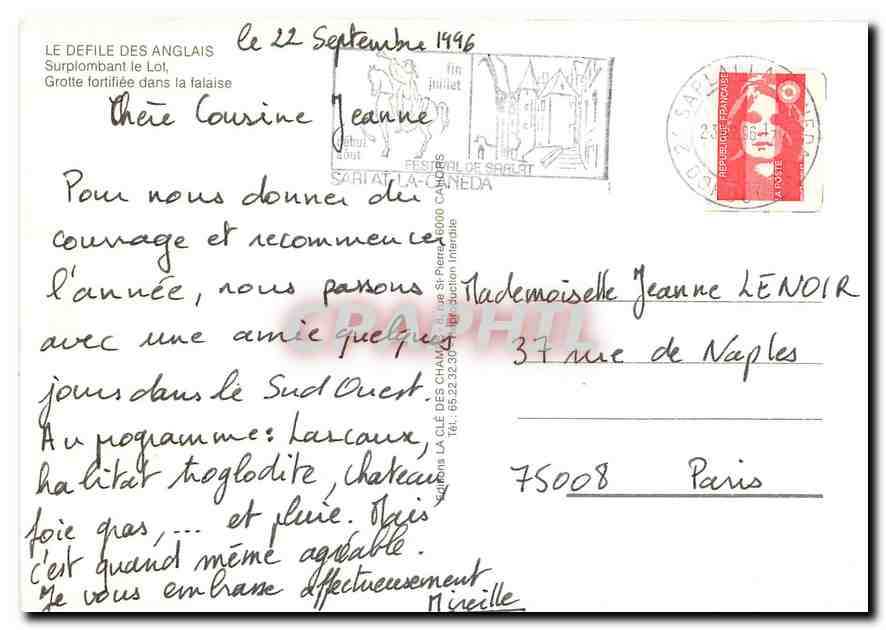 LE DEFILE DES ANGLAIS
Surplombant le Lot,
Grotte fortifiée dans la falaise
le 22 Septembre 1996
Chère Cousine Jeanne
Pour nous donner du
courage et recommencer
l'année, nous passons
avec une amie quelques
jours dans le Sud Ouest.
Au programme: Lascaux,
habitat troglodite, Chateau,
foie gras, ... et pluie. Mais
c'est quand même agréable.
Je vous embrasse affectueusement
Mireille
fin
juillet
début
août
FESTIVAL DE SARLAT
SARLAT-LA-CANEDA
RÉPUBLIQUE FRANÇAISE
LA POSTE
Editions LA CLÉ DES CHAMPS, 8, rue St-Pierre, 46000 CAHORS
Tél.: 65.22.32.30 Reproduction Interdite
CPAPHIL
Mademoiselle Jeanne LENOIR
37 rue de Naples
75008 Paris